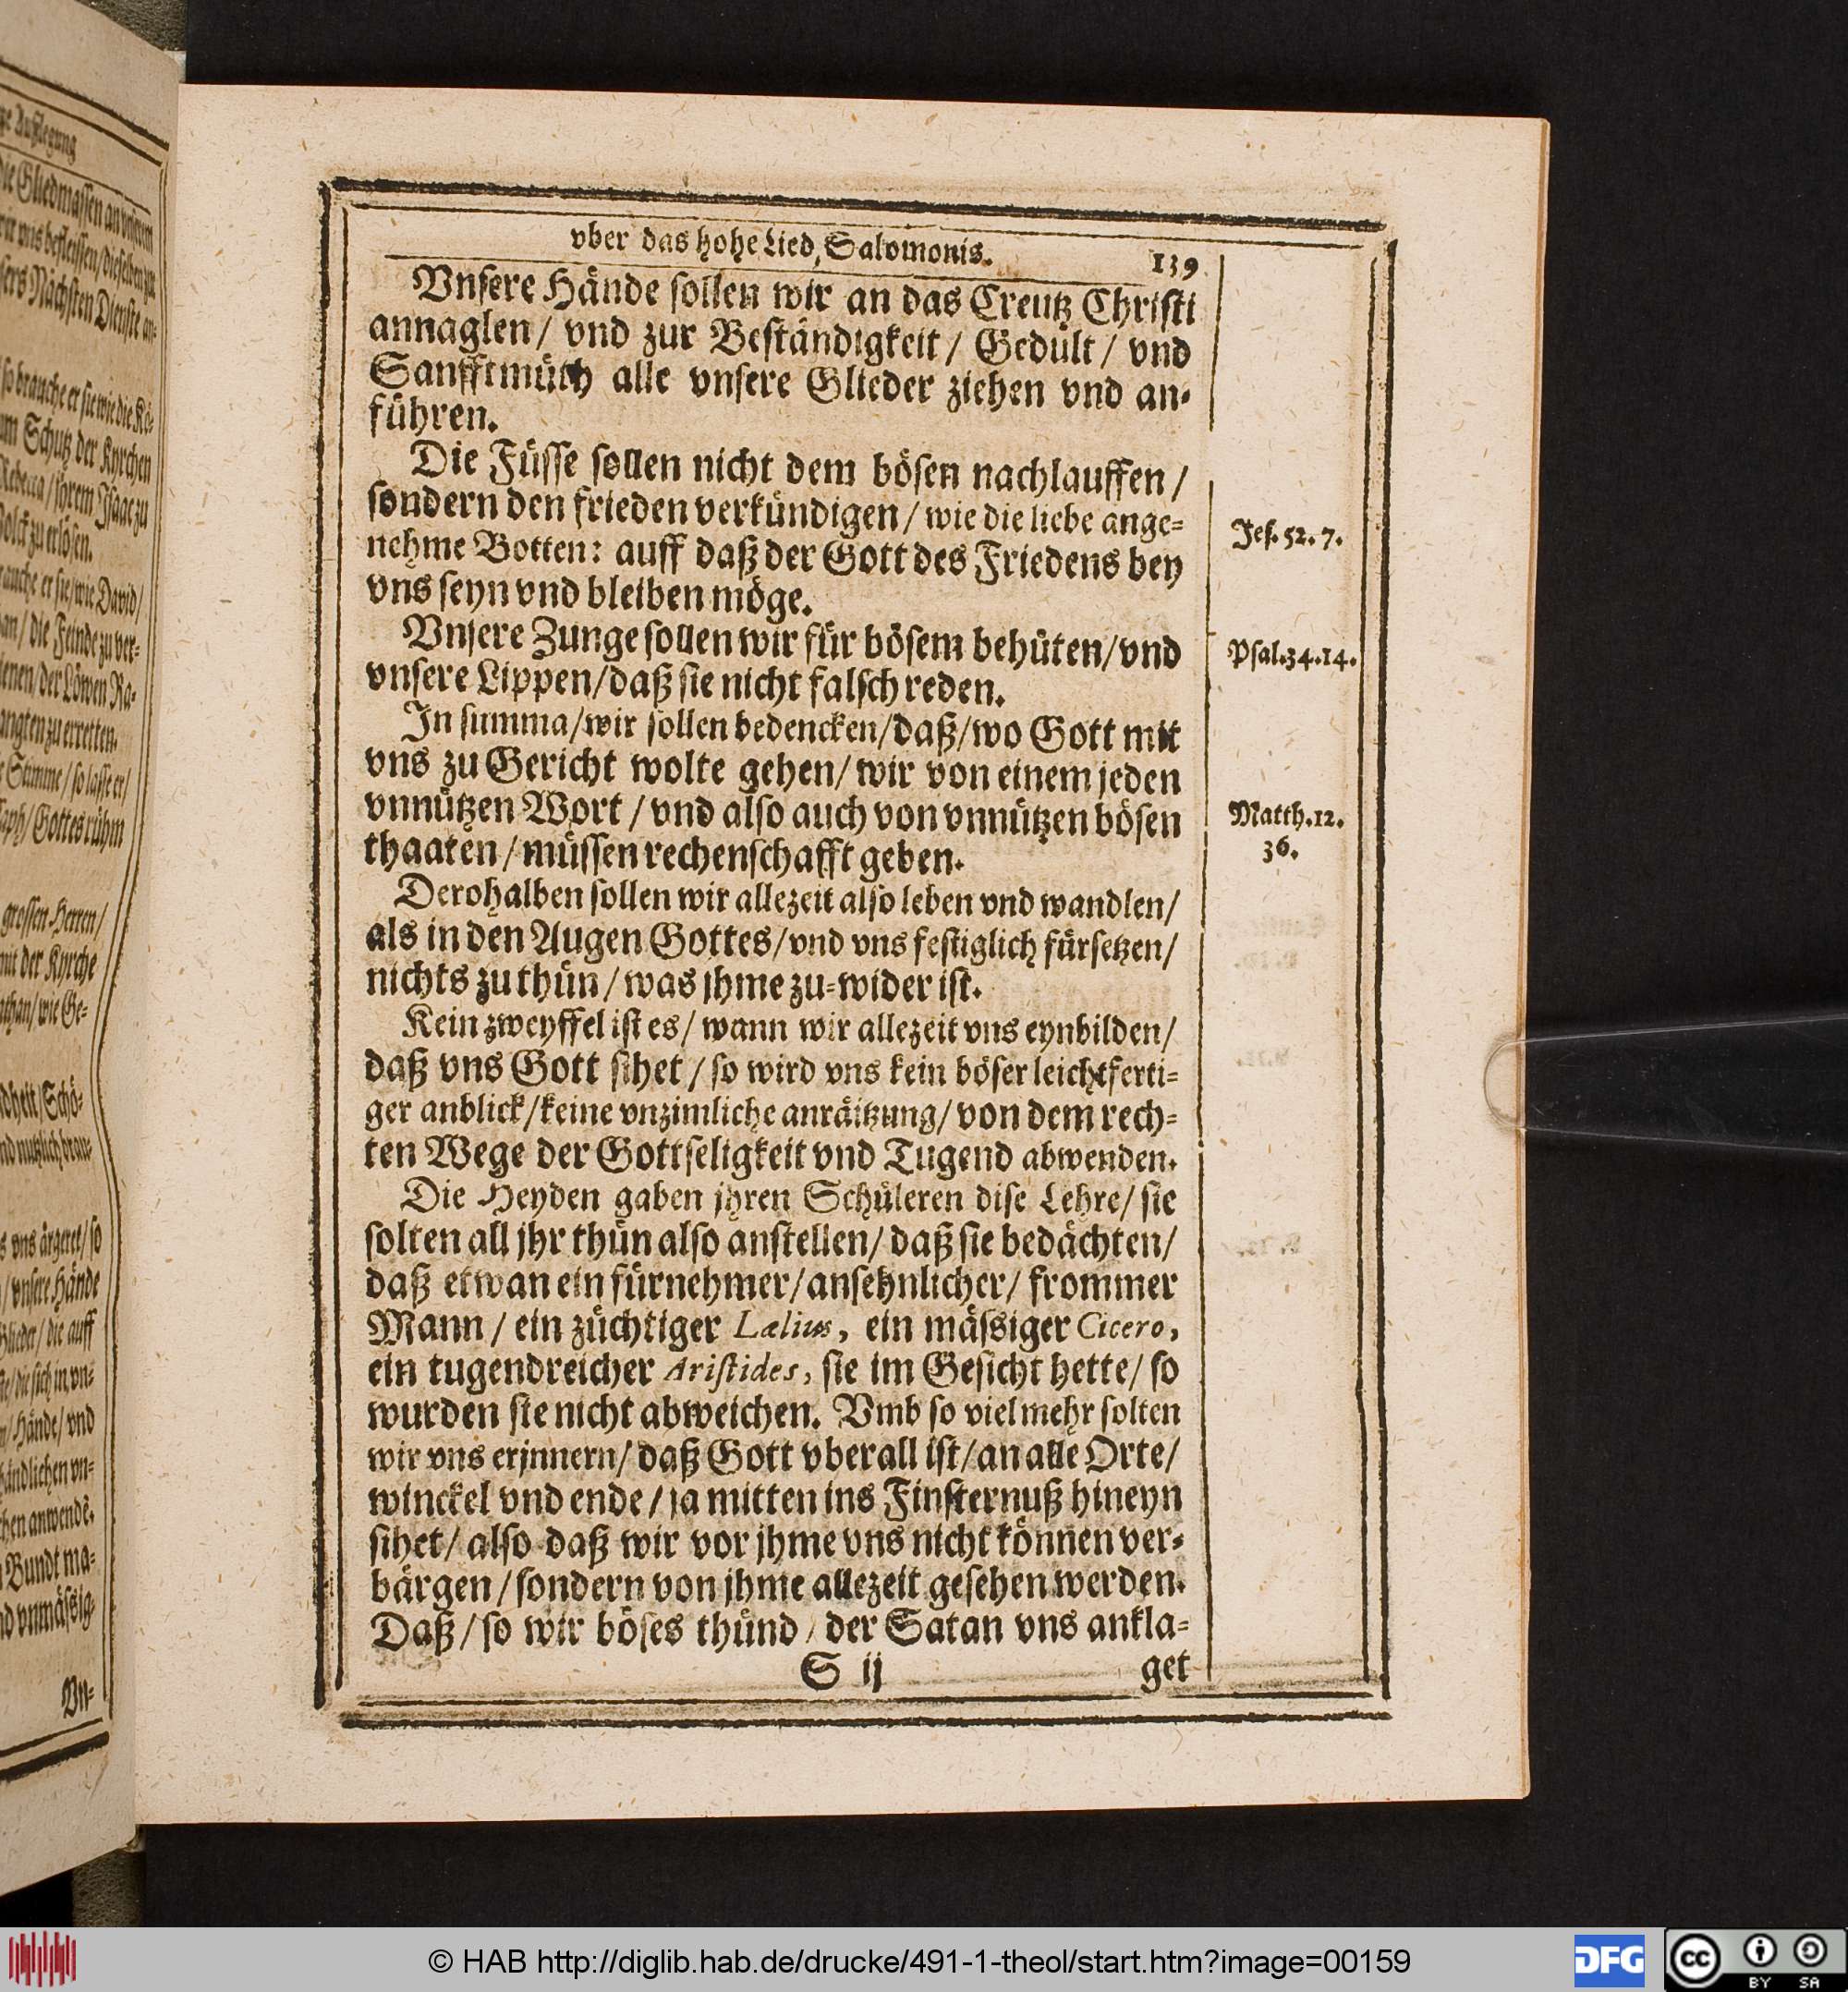 vber das hohe Lied, Salomonis. 139
Vnsere Hände sollen wir an das Creutz Christi
annaglen / vnd zur Beständigkeit / Gedült / vnd
Sanfftmüth alle vnsere Glieder ziehen vnd an-
führen.
Die Füsse sollen nicht dem bösen nachlauffen /
sondern den frieden verkündigen / wie die liebe ange-
nehme Botten: auff daß der Gott des Friedens bey
vns seyn vnd bleiben möge.
Jes. 52. 7.
Vnsere Zunge sollen wir für bösem behüten / vnd
vnsere Lippen / daß sie nicht falsch reden.
Psal. 34. 14.
In summa / wir sollen bedencken / daß / wo Gott mit
vns zu Gericht wolte gehen / wir von einem jeden
vnnützen Wort / vnd also auch von vnnützen bösen
thaaten / müssen rechenschafft geben.
Matth. 12.
36.
Derohalben sollen wir allezeit also leben vnd wandlen /
als in den Augen Gottes / vnd vns festiglich fürsetzen /
nichts zu thün / was jhme zu-wider ist.
Kein zweyffel ist es / wann wir allezeit vns eynbilden /
daß vns Gott sihet / so wird vns kein böser leichtferti-
ger anblick / keine vnzimliche anräitzung / von dem rech-
ten Wege der Gottseligkeit vnd Tugend abwenden.
Die Heyden gaben jhren Schüleren dise Lehre / sie
solten all jhr thün also anstellen / daß sie bedächten /
daß etwan ein fürnehmer / ansehnlicher / frommer
Mann / ein züchtiger Lælius, ein mässiger Cicero,
ein tugendreicher Aristides, sie im Gesicht hette / so
wurden sie nicht abweichen. Vmb so viel mehr solten
wir vns erjnnern / daß Gott vberall ist / an alle Orte /
winckel vnd ende / ja mitten ins Finsternuß hineyn
sihet / also daß wir vor jhme vns nicht können ver-
bärgen / sondern von jhme allezeit gesehen werden.
Daß / so wir böses thünd / der Satan vns ankla-
S ij get
© HAB http://diglib.hab.de/drucke/491-1-theol/start.htm?image=00159
DFG
cc BY SA